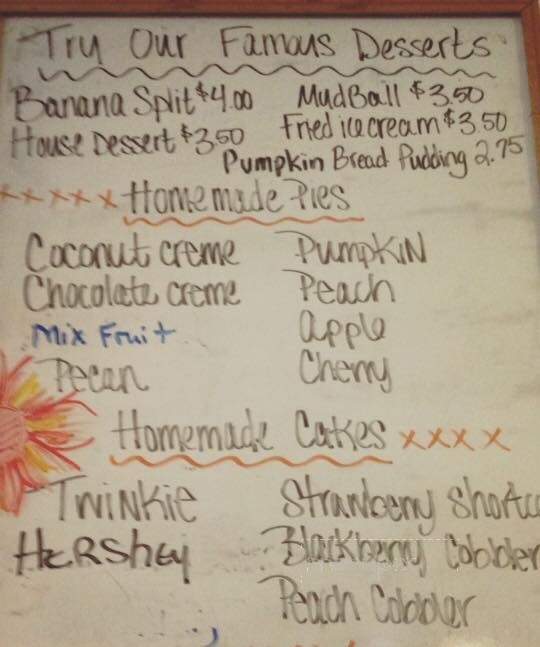 Try Our Famous Desserts
Banana Split $4.00 MudBall $3.50
House Dessert $3.50 Fried ice cream $3.50
Pumpkin Bread Pudding 2.75
xxxxx Homemade Pies
Coconut creme Pumpkin
Chocolate creme Peach
Mix Fruit apple
Pecan Cherry
Homemade Cakes xxxx
Twinkie Strawberry Shortc
Hershey Blackberry Cobbler
Peach Cobbler